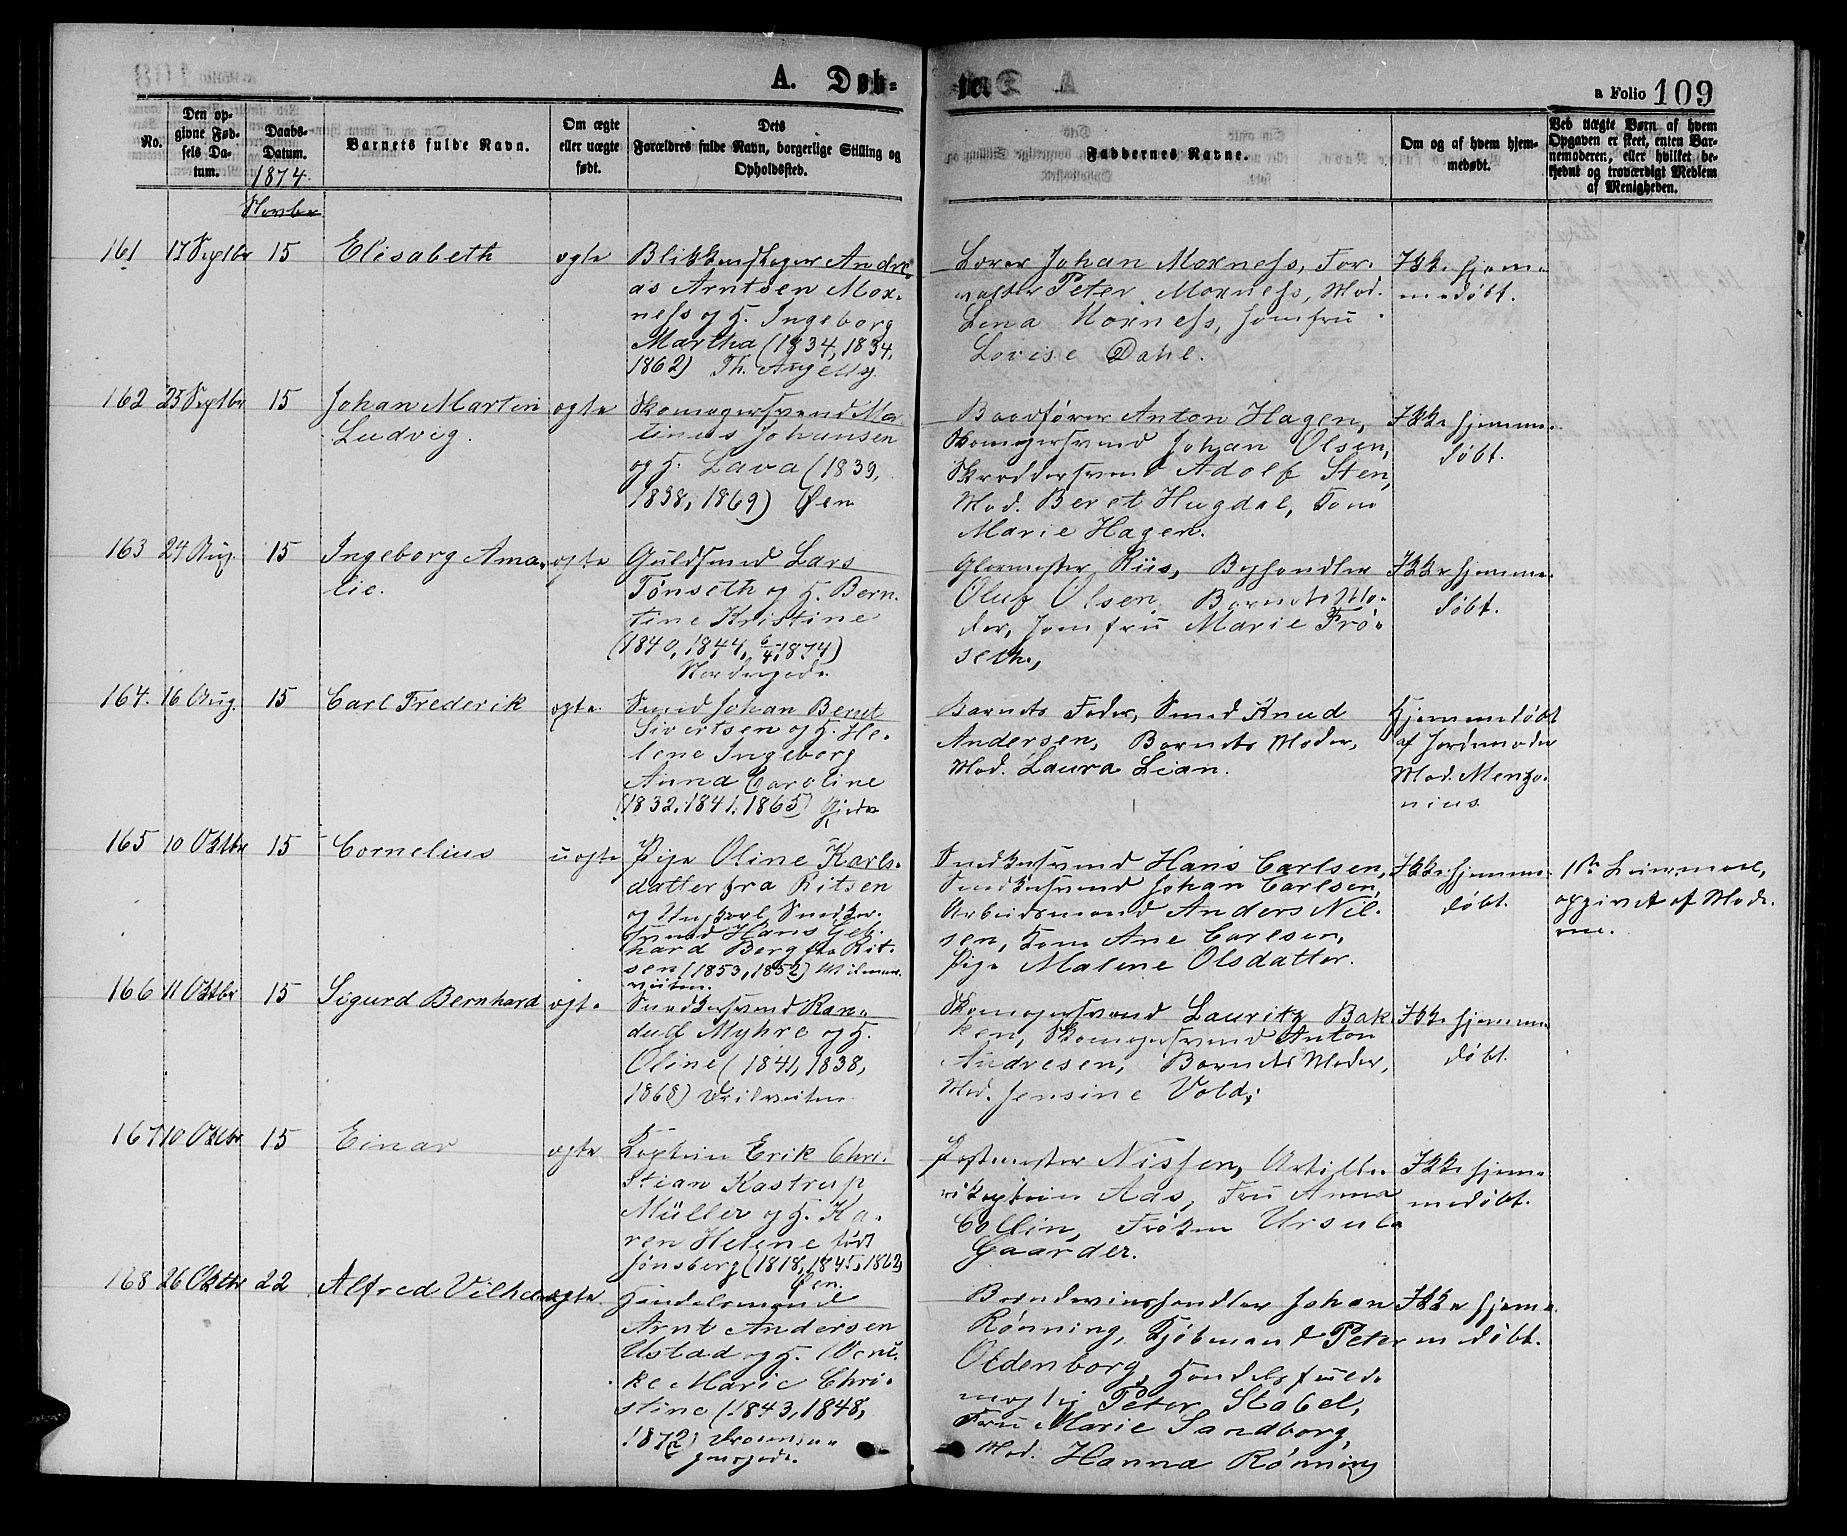 A. Døb-
te.
a Folio 109
No.
Den op-
givne Fød-
sels Da-
tum.
Daabs-
Datum.
1874.
Barnets fulde Navn.
Om ægte
eller uægte
født.
Dets
Forældres fulde Navn, borgerlige Stilling og
Opholdssted.
Faddernes Navne.
Om og af hvem hjem-
medøbt.
Ved uægte Børn af hvem
Opgaven er skeet, enten Bar-
nemoderen, eller hvilket be-
kjendt og troværdigt Medlem
af Menigheden.
Novbr
161
17 Septbr
15
Elisabeth
ægte
Blikkenslager Andre-
as Arntsen Mox-
ness og H. Ingeborg
Martha (1834, 1834,
1862) Th. Angellsg.
Lærer Johan Moxness, For-
valter Peter Moxness, Mad.
Lena Moxness, Jomfru
Lovise Dahl.
Ikke hjem-
medøbt.
162
25 Septbr
15
Johan Martin
Ludvig.
ægte
Skomagersvend Ma-
tinus Johansen
og H. Lava (1839,
1838, 1869) Øen
Boovfører Anton Hagen,
Skomagersvend Johan Olsen,
Skræddersvend Adolf Sten,
Mad. Beret Hugdal, Kone
Marie Hagen.
Ikke hjemme-
døbt.
163
24 Aug.
15
Ingeborg Ama-
lie.
ægte
Guldsmed Lars
Tønseth og H. Bern-
tine Kristine
(1840, 1844, 6/4 1874)
Nordregade.
Glarmester Riis, Boghandler
Oluf Olsen, Barnets Mo-
der, Jomfru Marie Frø-
seth,
Ikke hjemme-
døbt.
164.
16 Aug.
15
Carl Frederik
ægte.
Smed Johan Bernt
Sivertsen og H. He-
lene Ingeborg
Anna Caroline
(1832, 1841, 1865)
Barnets Fader, Smed Knud
Andersen, Barnets Moder,
Mad. Laura Lian.
Hjemmedøbt
af Jordemoder
Mad. Menzo-
nius
165
10 Oktbr
15
Cornelius
uægte
Pige Oline Karls-
datter fra Ritsen
og Ungkarl Snedker-
svend Hans Geb-
hard Berg fra Rit-
sen (1853, 1852)
Snedkersvend Hans Carlsen,
Snedkersvend Johan Carlsen,
Arbeidsmand Anders Nil-
sen, Kone Ane Carlsen,
Pige Malene Olsdatter.
Ikke hjemme-
døbt.
1ste Leiermaal,
opgivet af Mode-
ren.
166
11 Oktbr
15
Sigurd Bernhard
ægte
Snedkersvend Ran-
dull Myhre og H.
Oline (1841, 1838,
1868)
Skomagersvend Lauritz Bak-
ken, Skomagersvend Anton
Andresen, Barnets Moder,
Mad. Jensine Vold,
Ikke hjemme-
døbt.
167
10 Oktbr
15
Einar
ægte
Kaptein Erik Chri-
stian Kastrup
Müller og H. Ka-
ren Helene født
Jønsberg (1818, 1845, 1862)
Øen.
Postmester Nissen, Artille-
rikaptein Aas, Fru Anna
Collin, Frøken Ursula
Gaarder.
Ikke hjem-
medøbt.
168
26 Oktbr
22
Alfred Vilhelm
ægte.
Handelsmand
Arnt Andersen
Ustad og H.
Marie Chri-
stine (1843, 1848,
1872)
Brændevinshandler Johan
Rønning, Kjøbmand Peter
Oldenborg, Handelsfuld-
mægtig Peter Stabel,
Fru Marie Sandborg,
Mad. Hanna Rønning
Ikke hjem-
medøbt.